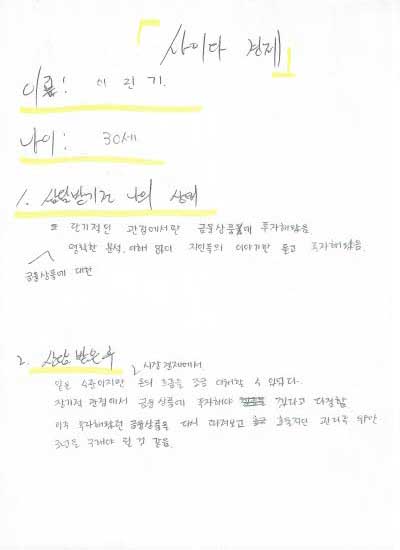 「사이다 경제」
이름: 이진기.
나이: 30세
1. 상담받기전 나의 상태
단기적인 관점에서만 금융상품에 투자해왔음
명확한 분석, 이해 없이 지인들의 이야기만 듣고 투자해왔음.
금융상품에 대한
2. 상담 받은 후
시장경제에서
짧은 시간이지만 돈의 흐름을 조금 이해할 수 있었다.
장기적 관점에서 금융상품에 투자해야 겠다고 다짐함.
이후 투자해왔던 금융상품을 다시 따져보고 효율적인 관리
3년을 될 것 같음.